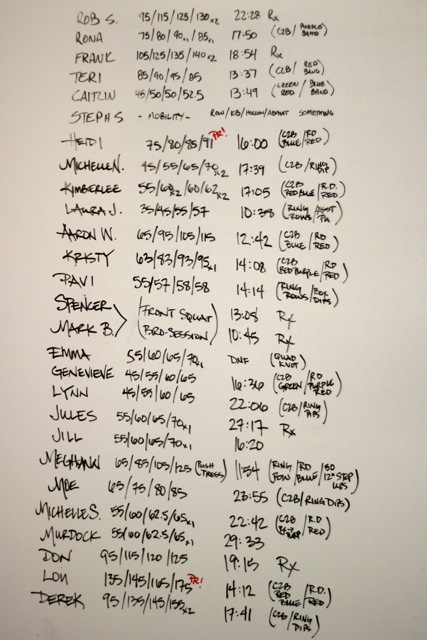 ROB S. 95/115/125/130x2 22:28 Rx
RONA 75/80/90x1/85x1 17:50 (C2B/PURPLE BAND)
FRANK 105/125/135/140x2 18:54 Rx
TERI 85/90/95/85 13:37 (C2B/RED BAND)
CAITLIN 45/50/50/52.5 13:49 (GREEN/BLUE RED/BAND)
STEPH S. - MOBILITY - ROW/KB/HOLLOW/ABMAT SOMETHING
HEIDI 75/80/85/91 PR! 16:00 (C2B/RD BLUE/RED)
MICHELLE N. 45/55/65/70x2 17:39 (C2B/RING DIP)
KIMBERLEE 55/63x2/60/62x2 17:05 (C2B/R.D. RED BLUE/RED)
LAURA J. 35/45/55/57 10:38 (RING ROWS/)
AARON W. 65/95/105/115 12:42 (C2B/RD BLUE/RED)
KRISTY 63/83/93/95x1 14:08 (C2B/RD RED PURPLE/RED)
PAVI 55/57/58/58 14:14 (RING ROWS/BOX DIPS)
SPENCER (FRONT SQUAT 13:08 Rx
MARK B. BRO-SESSION) 10:45 Rx
EMMA 55/60/65/70x1 DNF (QUAD KNOT)
GENEVIEVE 45/55/60/65 16:36 (C2B/RD GREEN/PURPLE RED)
LYNN 45/55/60/65 22:06 (C2B/RING DIPS)
JULES 55/60/65/70x1 27:17 Rx
JILL 55/60/65/70x1 16:20
MEGHANN 65/85/105/125 (PUSH PRESS) 11:54 (RING ROW/RD BLUE/30 12" STEP UPS)
MOE 65/75/80/85 23:55 (C2B/RING DIPS)
MICHELLE S. 55/60/62.5/65x1 22:42 (C2B/R.D. RED)
MURDOCK 55/60/62.5/65x1 29:33
DON 95/115/120/125 19:15 Rx
LOU 135/145/165/175 PR! 14:12 (C2B/R.D. RED BLUE/RED)
DEREK 95/135/145/155x2 17:41 (C2B/RING DIPS)